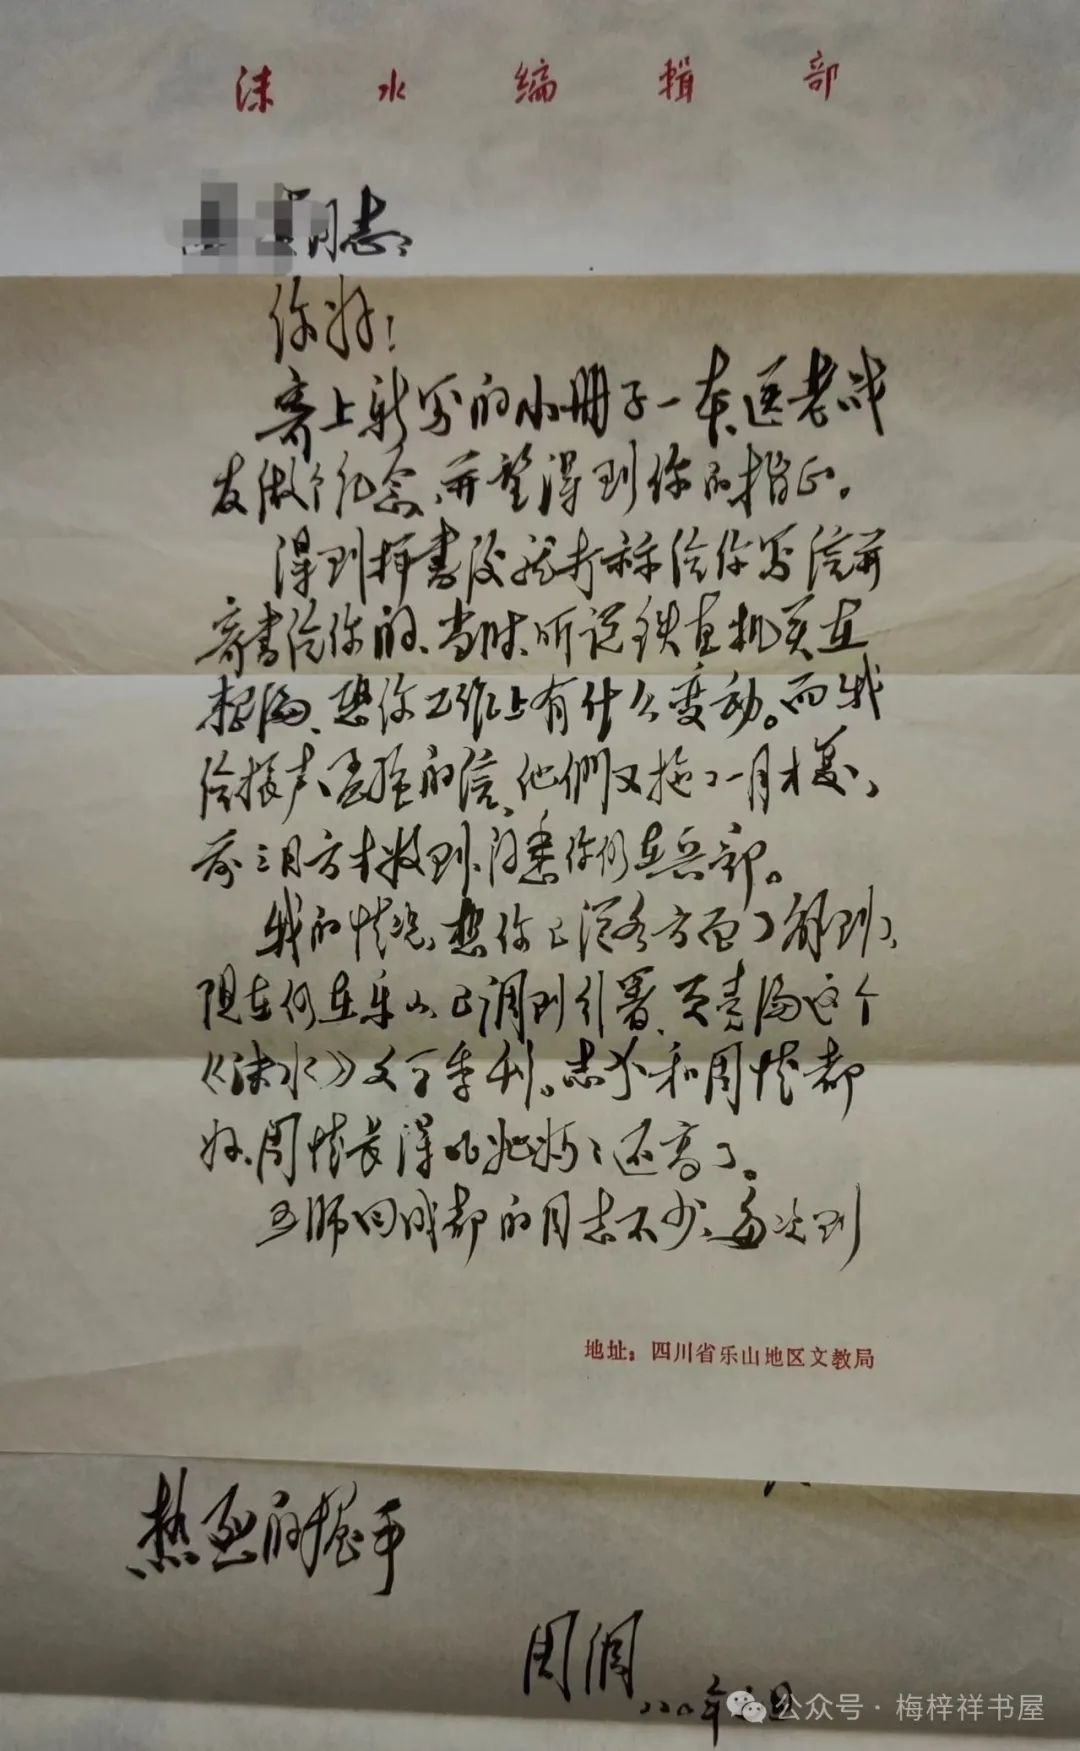 沫水编辑部
同志：
你好！
寄上新写的小册子一本，送老战
友做个纪念，并望得到你的指正。
得到样书后就打算给你写信并
寄书给你的，当时，听说铁直机关在
想你工作上有什么变动。而我
给振声、的信，他们又拖了一月才复，
前三月方才收到，你仍在兵部。
我的情况，想你已从各方面了解到，
现在仍在乐山，已调到行署，负责编这个
《沫水》文学季刊。和周情都
好，周情长得比她妈妈还高了。
五师回成都的同志不少，每次到
地址：四川省乐山地区文教局
热烈的握手
周
公众号·梅梓祥书屋